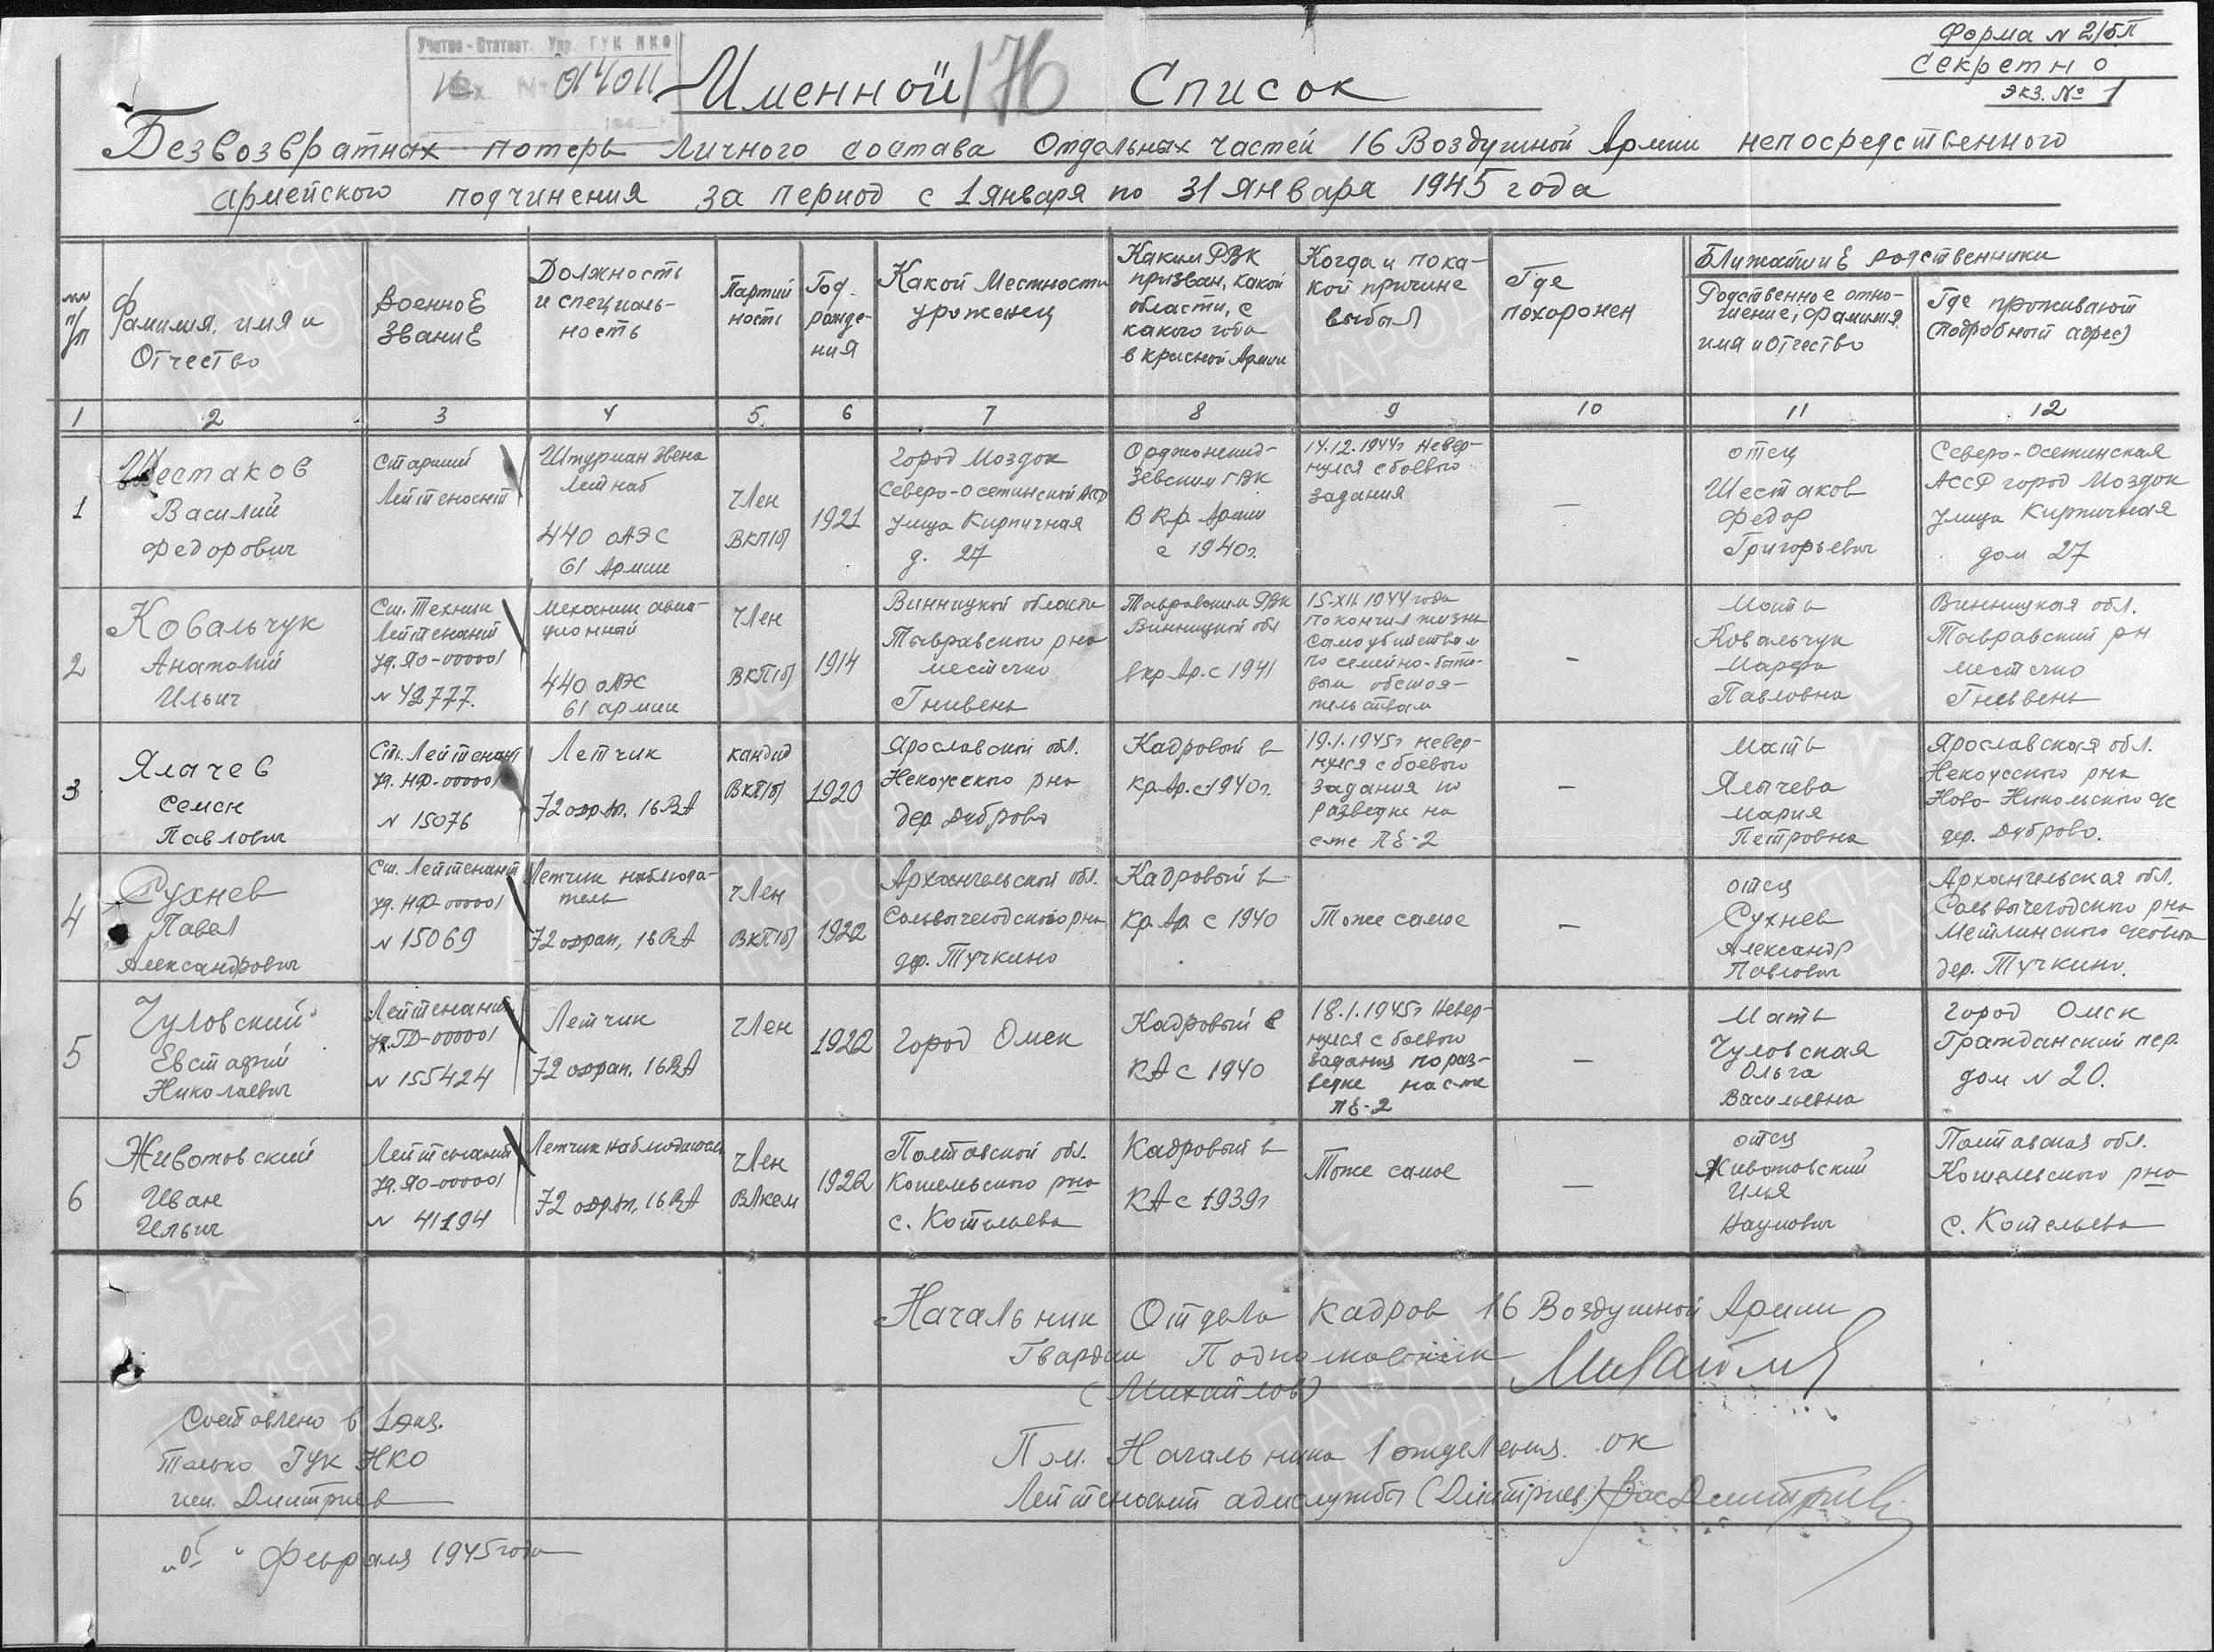 Форма N 2/БП
Секретно
экз. № 1
Учетно-Статист. Упр. ГУК НКО
Вх № 014011
176
Именной Список
Безвозвратных потерь личного состава Отдельных частей 16 Воздушной Армии непосредственного
армейского подчинения за период с 1 января по 31 января 1945 года
п/п
Фамилия, имя и
Отчество
Военное
звание
Должность
и специаль-
ность
Партий
ность
Год
рожде-
ния
Какой Местности
уроженец
Каким РВК
призван, какой
области, с
какого года
в красной Армии
Когда и по ка-
кой причине
выбыл
Где
похоронен
Ближайшие родственники
Родственное отно-
шение, фамилия
имя и отчество
Где проживают
(подробный адрес)
1 2 3 4 5 6 7 8 9 10 11 12
1
Шестаков
Василий
Федорович
Старший
Лейтенант
Штурман звена
Летнаб
440 ОАЭС
61 Армии
Член
ВКП(б)
1921
город Моздок
Северо-Осетинской АССР
улица Кирпичная
д. 27
Орджоникид-
зевским ГВК
В Кр. Армии
с 1940г.
14.12.1944г Невер-
нулся с боевого
задания
—
отец
Шестаков
Федор
Григорьевич
Северо-Осетинская
АССР город Моздок
улица Кирпичная
дом 27
2
Ковальчук
Анатолий
Ильич
Ст. Техник
Лейтенант
уд. ЯО-00001
N 42777.
Механик авиа-
ционный
440 ОАЭС
61 армии
Член
ВКП(б)
1914
Винницкой области
Тывравского р-на
местечко
Гнивень
Тывравским РВК
Винницкой обл
в кр. Ар. с 1941
15.XII.1944 года
покончил жизнь
самоубийством
по семейно-быто-
вым обстоя-
тельствам
-
Мать
Ковальчук
Марфа
Павловна
Винницкая обл.
Тывравский рн
местечко
Гневень
3
Ялачев
Семен
Павлович
Ст. Лейтенант
уд. НФ-00001
N 15076
Летчик
72 одрап. 16 ВА
кандид
ВКП(б)
1920
Ярославской обл.
Некоузского р-на
дер Дуброво
Кадровый в
Кр. Ар. с 1940г.
19.1.1945г невер-
нулся с боевого
задания по
разведке на
с-те ПЕ-2
-
Мать
Ялычева
Мария
Петровна
Ярославская обл.
Некоузского р-на
Ново-Никольского с/с
дер. Дуброво.
4
Сухнев
Павел
Александрович
Ст. Лейтенант
уд. НФ-00001
N 15069
Летчик наблюда-
тель
72 одрап, 16 ВА
Член
ВКП(б)
1922
Архангельской обл.
Сольвычегодского р-на
дер. Тучкино
Кадровый в
Кр. Ар. с 1940
Тоже самое
—
отец
Сухнев
Александр
Павлович
Архангельская обл.
Сольвычегодского р-на
Метлинского с/совета
дер. Тучкино.
5
Чуловский
Евстафий
Николаевич
Лейтенант
уд. ГД-00001
N 155424
Летчик
72 одрап. 16 ВА
Член
1922
Город Омск
Кадровый в
КА с 1940
18.1.1945г Невер-
нулся с боевого
задания по раз-
ведке на с-те
ПЕ-2
—
Мать
Чуловская
Ольга
Васильевна
Город Омск
Гражданский пер.
дом N 20.
6
Животовский
Иван
Ильич
Лейтенант
уд. ЯО-00001
N 41194
Летчик наблюдатель
72 одрап, 16 ВА
Член
ВЛКСМ
1922
Полтавской обл.
Котельского р-на
с. Котельева
Кадровый в
КА с 1939г
Тоже самое
—
отец
Животовский
Илья
Наумович
Полтавская обл.
Котельского р-на
с. Котельева
Начальник Отдела кадров 16 Воздушной Армии
Гвардии Подполковник
(Михайлов)
Составлено в 1 экз.
Только ГУК НКО
исп. Дмитриев
Пом. Начальника 1 отделения. ОК
Лейтенант адм.службы (Дмитриев)
„05" Февраля 1945 года
ПАМЯТЬ
НАРОДА